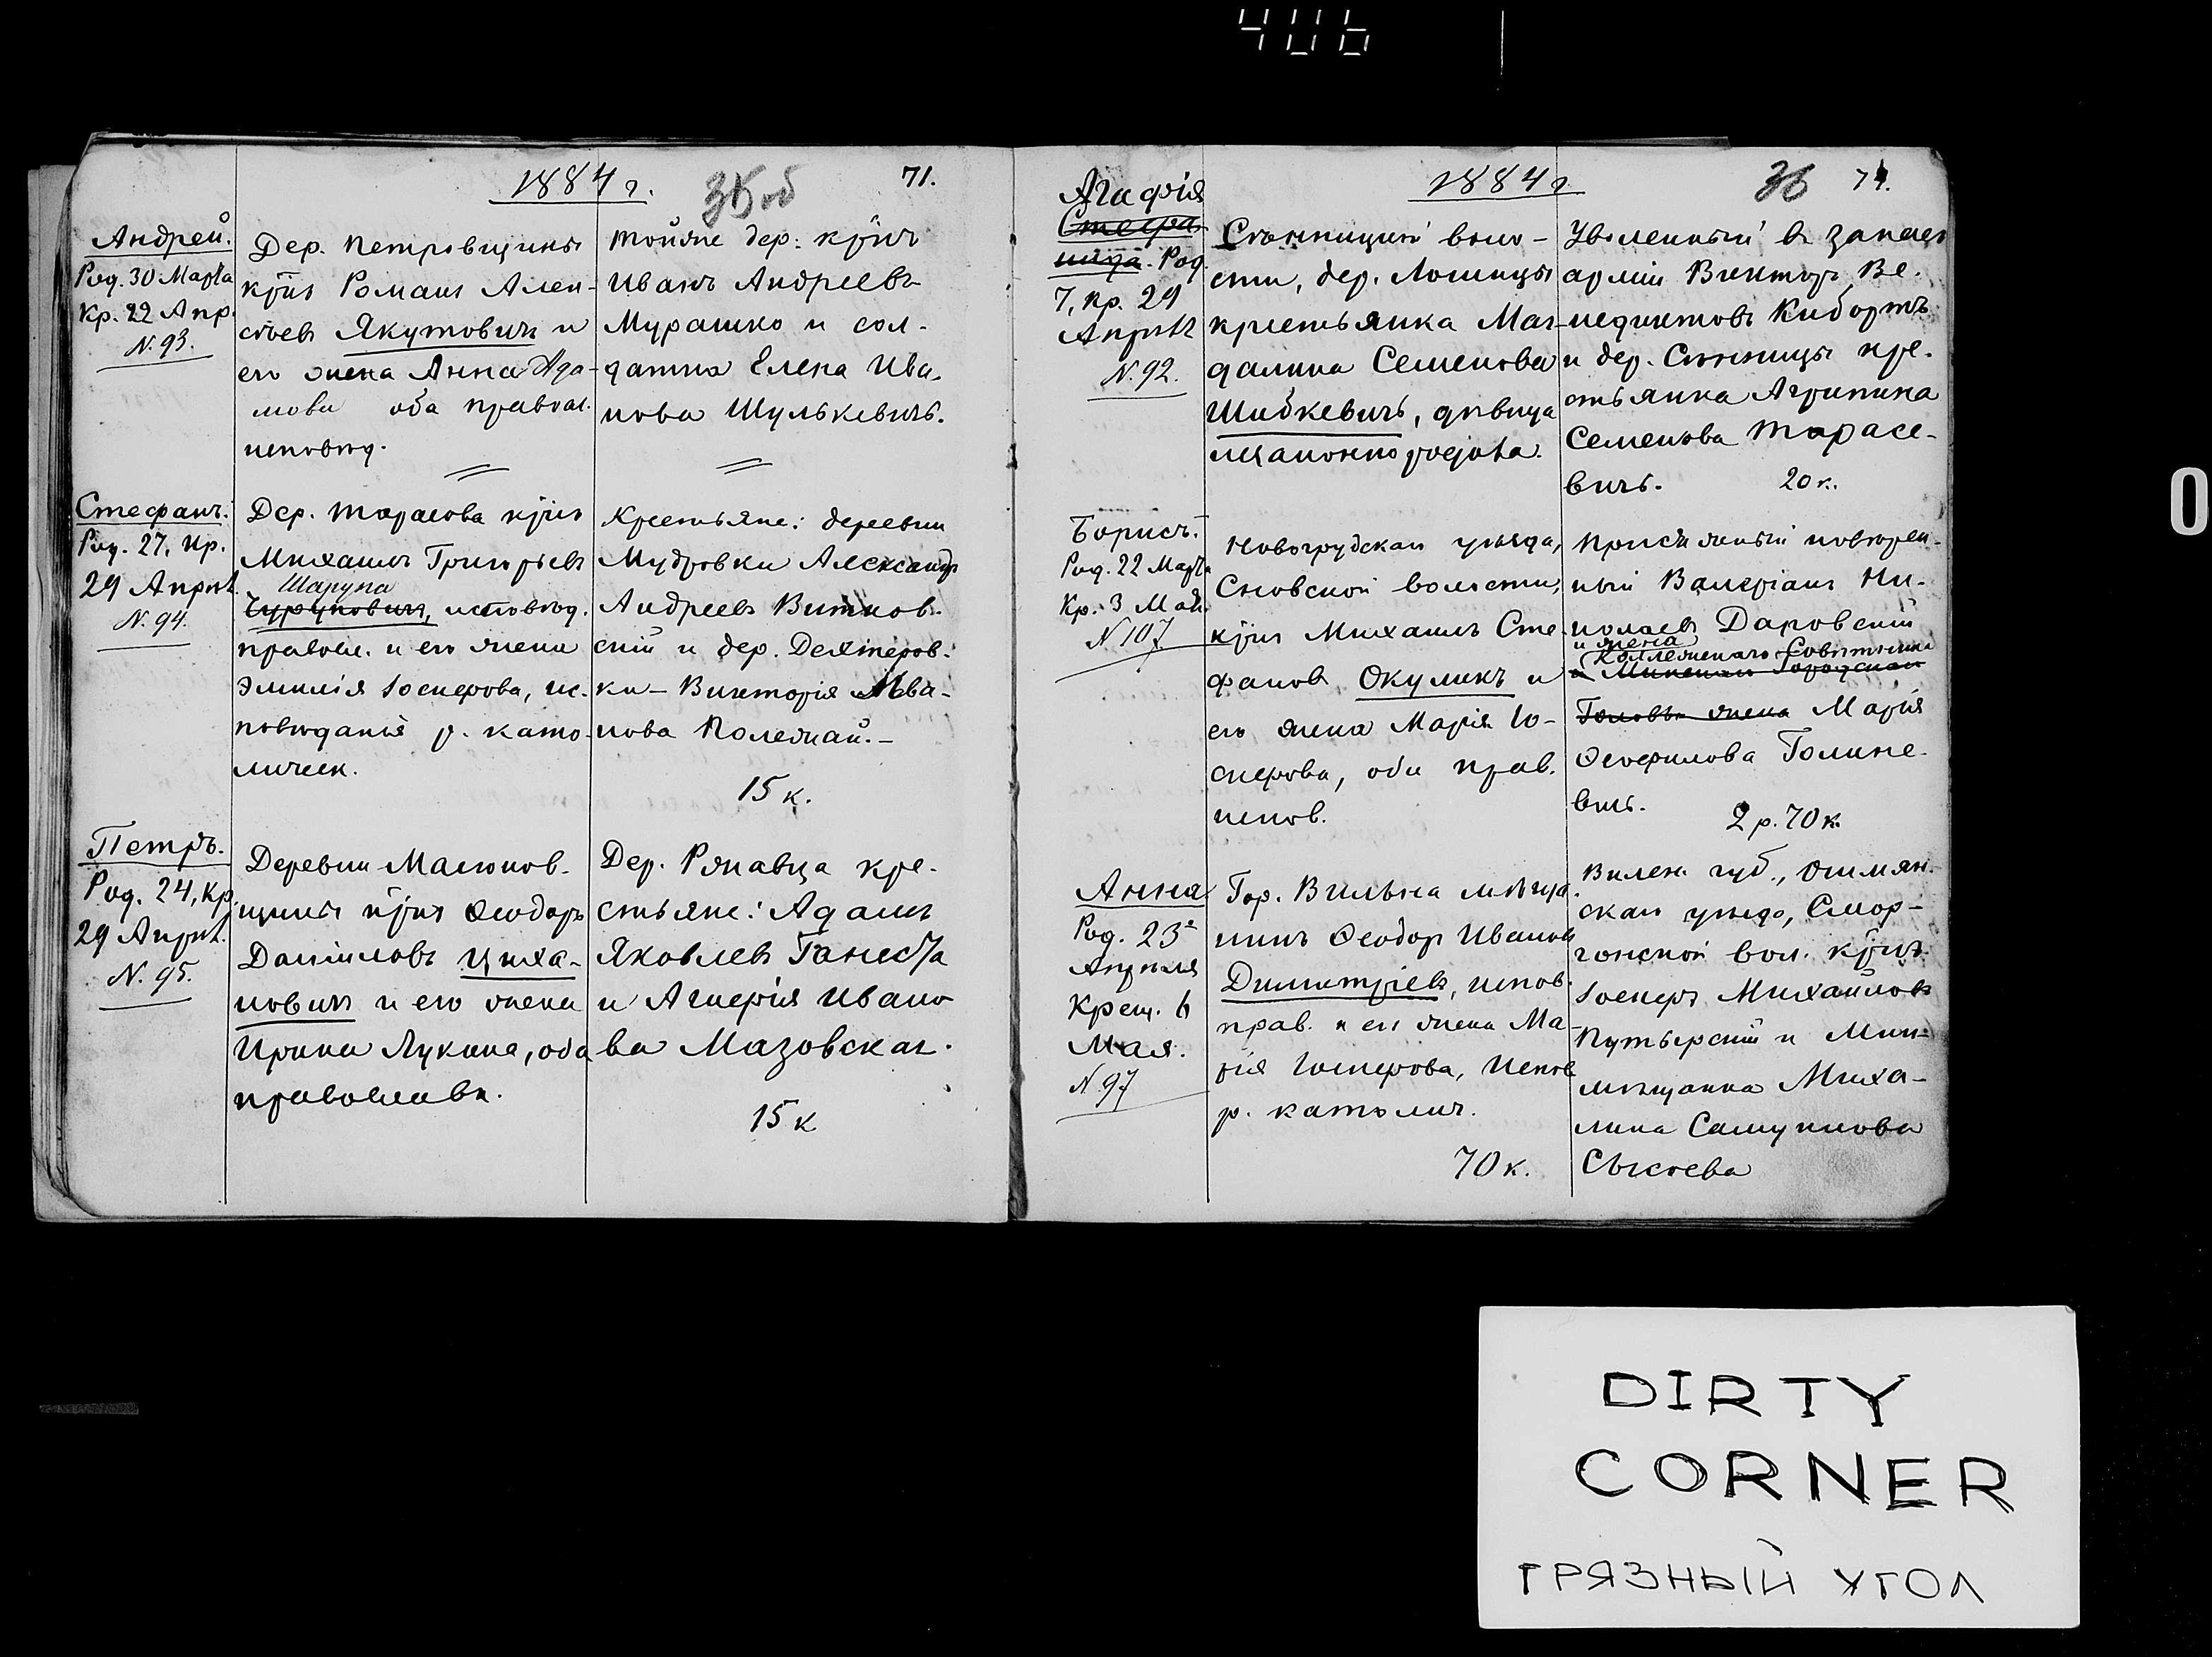 406
1884 г.
35 об
71.
Андрей.
Род. 30 Марта
Кр. 22 Апр.
N. 93.
Дер. Петровщины
кр̃нъ Романъ Алек-
сѣевъ Якутовичъ и
его жена Анна Ада-
мова оба правосл.
исповѣд.
Тойже дер. кр̃нъ
Иванъ Андреевъ
Мурашко и сол-
датка Елена Ива-
нова Шулькевичъ.
Стефанъ.
Род. 27, кр.
29 Апрѣл.
N. 94.
Дер. Тарасова кр̃нъ
Михаилъ Григорьевъ
Шарупа
исповѣд.
правосл. и его жена
Эмилія Іосифова, ис-
повѣданія р. като-
лическ.
Крестьяне: деревни
Мудровки Александръ
Андреевъ Витков-
скій и дер. Дехтеров-
ки – Викторія Ива-
нова Полежай. –
15 к.
Петръ.
Род. 24, кр.
29 Апрѣл.
N. 95.
Деревни Масюков-
щины кр̃нъ Ѳеодоръ
Даніиловъ Циха-
новичъ и его жена
Ирина Лукина, оба
православн.
Дер. Ржавца кре-
стьяне: Адамъ
Яковлевъ
и Агафія Ивано
ва Мазовская.
15 к
1884 г
36
71.
Агафія
Стефа
нида. Род.
7, кр. 29
Апрѣл
N. 92.
Сѣнницкой воло-
сти, дер. Лошицы
крестьянка Маг-
далина Семенова
Шибкевичъ, дѣвица
Уволенный въ запасъ
арміи Викторъ Ве-
недиктовъ Кибортъ
и дер. Сѣнницы кре-
стьянка Агрипина
Семенова Тарасе-
вичъ. 20 к.
Борисъ.
Род. 22 Марта
Кр. 3 Мая
N 107.
Новогрудскаго уѣзда,
Сновской волости,
кр̃нъ Михаилъ Сте-
фановъ Окуликъ и
его жена Марія Іо-
сифова, оба прав.
испов.
Присяжный повѣрен-
ный Валеріанъ Ни-
колаевъ Даровскій
и жена
Коллежскаго Совѣтника
и Минскаго Городскаго
Головы жена Марія
Ѳеофилова Голине-
вичъ.
2 р. 70 к.
Анна
Род. 23
Апрѣля
Крещ. 6
Мая.
N. 97
Гор. Вильна мѣща
нинъ Ѳеодоръ Ивановъ
Димитріевъ, испов.
прав. и его жена Ма-
рія Іосифова, испов
р. католич.
70 к.
Вилен. губ., Ошмян-
скаго уѣзда, Смор-
гонской вол. кр̃нъ
Іосифъ Михаиловъ
Путырскій и Мин-
мѣщанка Миха-
лина Самуилова
Сысоева
DIRTY
CORNER
ГРЯЗНЫЙ УГОЛ
0